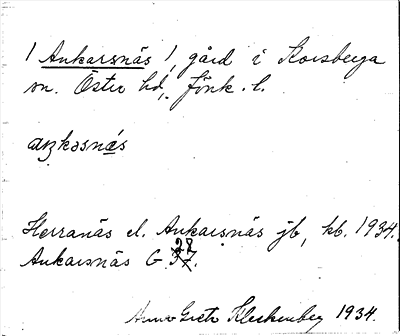 / Ankarsnäs /, gård i Korsberga
sn. Östra hd, Jönk. l.
aŋkasnä́s
Herranäs el. Ankarsnäs jb, kb. 1934.
Ankarsnäs G 28.
Anna-Greta Kleckenberg 1934.